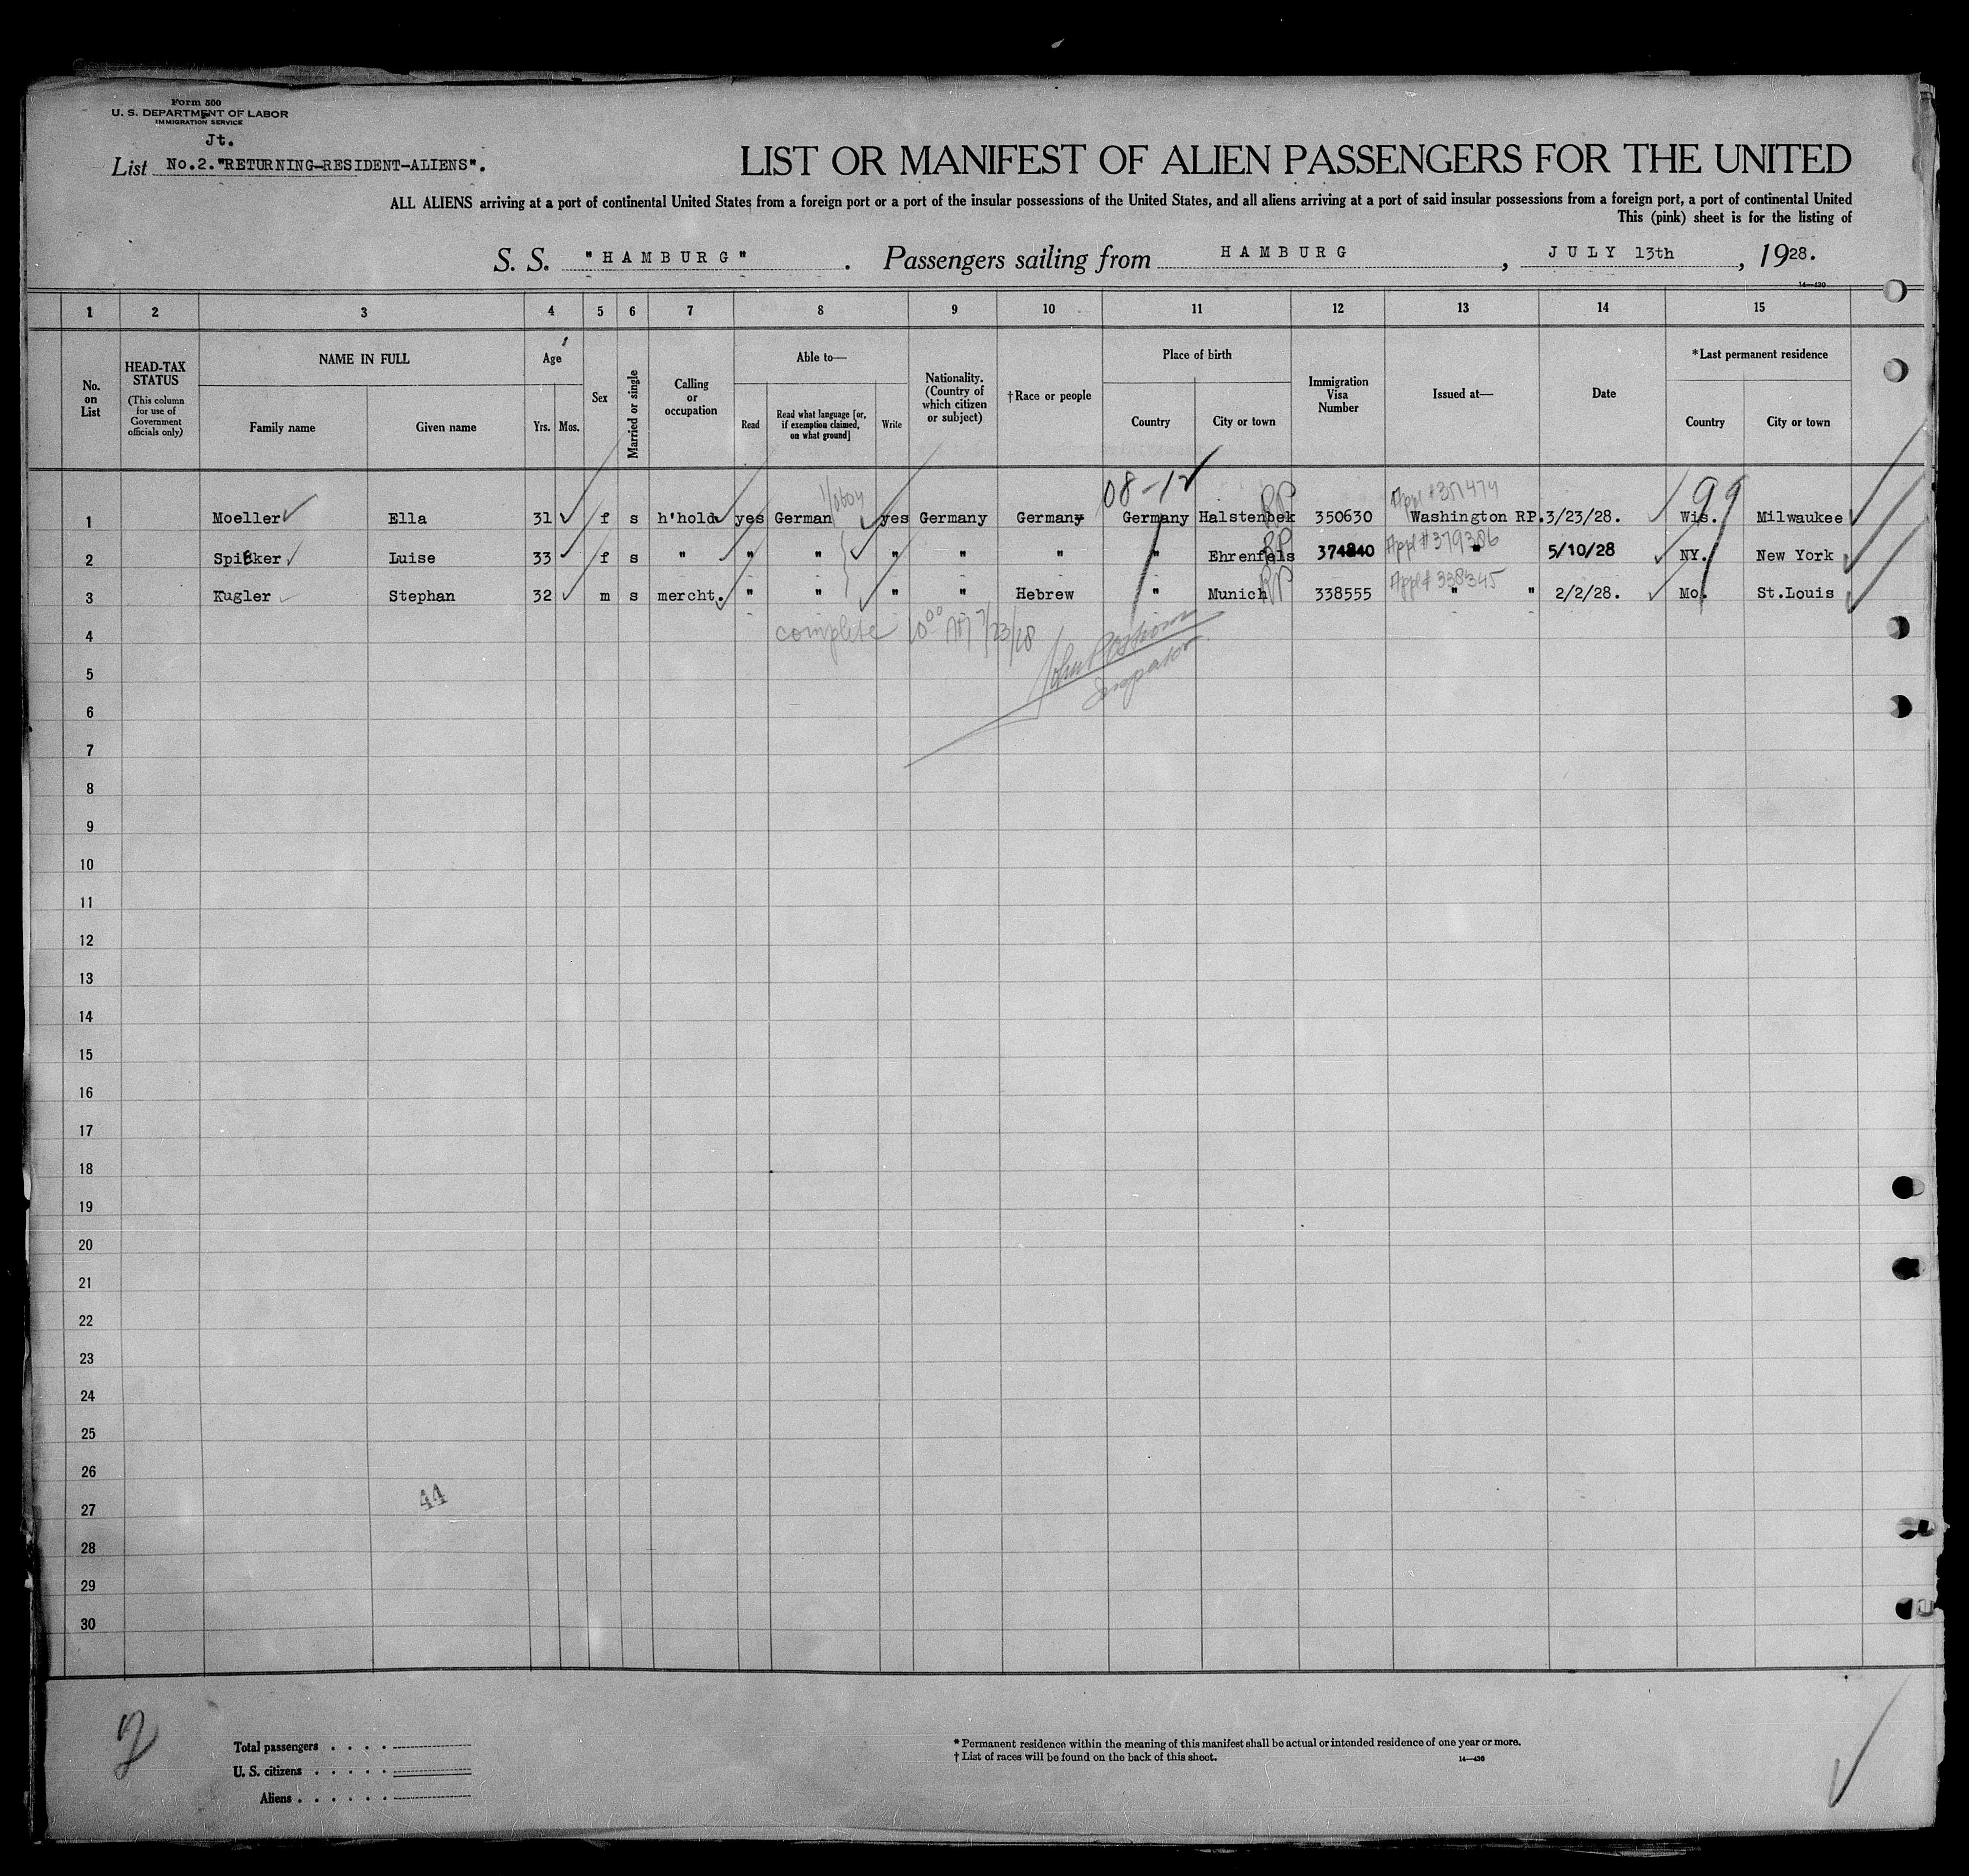 Form 500
U. S. DEPARTMENT OF LABOR
IMMIGRATION SERVICE
Jt.
List No.2."RETURNING-RESIDENT-ALIENS".
LIST OR MANIFEST OF ALIEN PASSENGERS FOR THE UNITED
ALL ALIENS arriving at a port of continental United States from a foreign port or a port of the insular possessions of the United States, and all aliens arriving at a port of said insular possessions from a foreign port, a port of continental United
This (pink) sheet is for the listing of
S. S. "HAMBURG". Passengers sailing from HAMBURG, JULY 13th, 1928.
1 2 3 4 5 6 7 8 9 10 11 12 13 14 15
No. on List
HEAD-TAX STATUS
(This column for use of Government officials only)
NAME IN FULL
Family name
Given name
Age
Yrs. Mos.
Sex
Married or single
Calling or occupation
Able to—
Read
Read what language [or, if exemption claimed, on what ground]
Write
Nationality. (Country of which citizen or subject)
†Race or people
Place of birth
Country
City or town
Immigration Visa Number
Issued at—
Date
*Last permanent residence
Country
City or town
08-12
99
Appl #351474
1 Moeller Ella 31 f s h'hold yes German yes Germany German Germany Halstenbek RP 350630 Washington RP. 3/23/28. Wis. Milwaukee
Appl #379386
2 Spieker Luise 33 f s " " " " " " " Ehrenfels RP 374840 " 5/10/28 NY. New York
Appl # 338345
3 Kugler Stephan 32 m s mercht. " " " " Hebrew " Munich RP 338555 " " 2/2/28. Mo. St.Louis
4 complete 10 00 AM 7/23/28
5 Inspector
6
7
8
9
10
11
12
13
14
15
16
17
18
19
20
21
22
23
24
25
26
44
27
28
29
30
2
Total passengers . . . .
U. S. citizens . . . . .
Aliens . . . . . .
* Permanent residence within the meaning of this manifest shall be actual or intended residence of one year or more.
† List of races will be found on the back of this sheet.